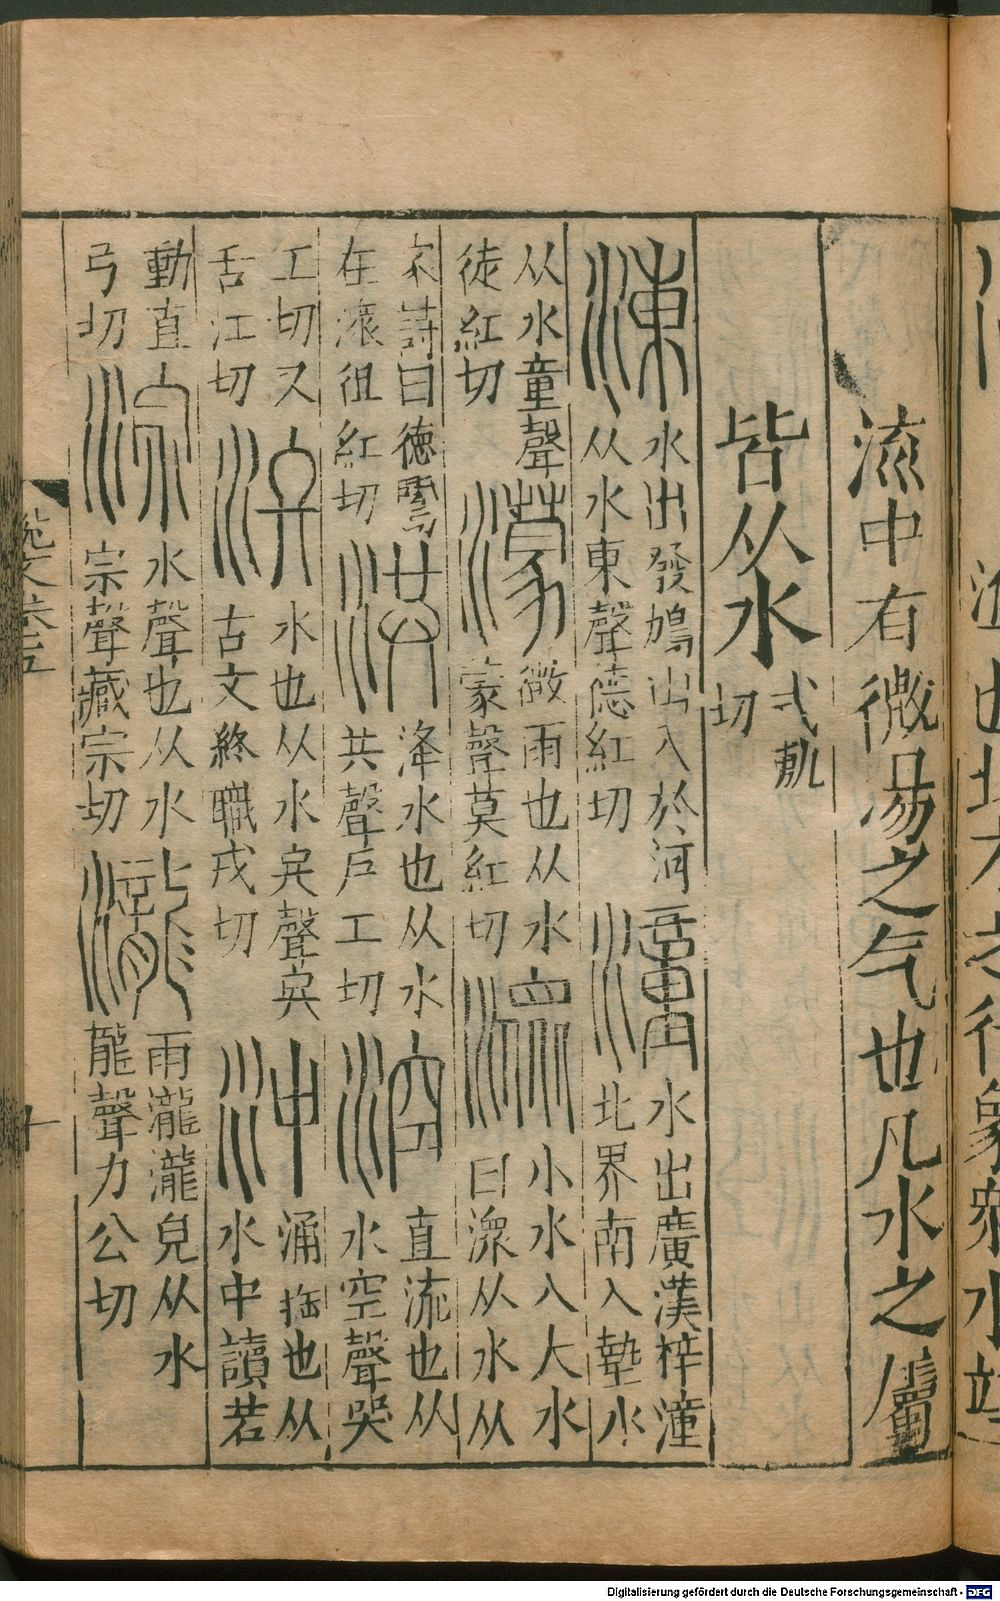 流中有微陽之气也凡水之屬
皆从水
式軌
切
涷
水出發鳩山入於河
从水東聲德紅切
潼
水出廣漢梓潼
北界南入墊水
从水童聲
徒紅切
濛
微雨也从水
蒙聲莫紅切
潨
小水入大水
曰潨从水从
㐺詩曰徳雲
在潨徂紅切
洪
洚水也从水
共聲戶工切
涳
直流也从
水空聲哭
工切又
舌江切
泈
水也从水聲
古文終職戎切
沖
涌搖也从
水中讀若
動直
弓切
淙
水聲也从水
宗聲藏宗切
瀧
雨瀧瀧皃从水
龍聲力公切
說文卷五
十
Digitalisierung gefördert durch die Deutsche Forschungsgemeinschaft - DFG